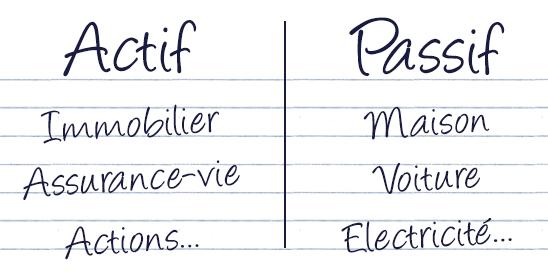 Actif
Passif
Immobilier
Maison
Assurance-vie
Voiture
Actions...
Electricité...